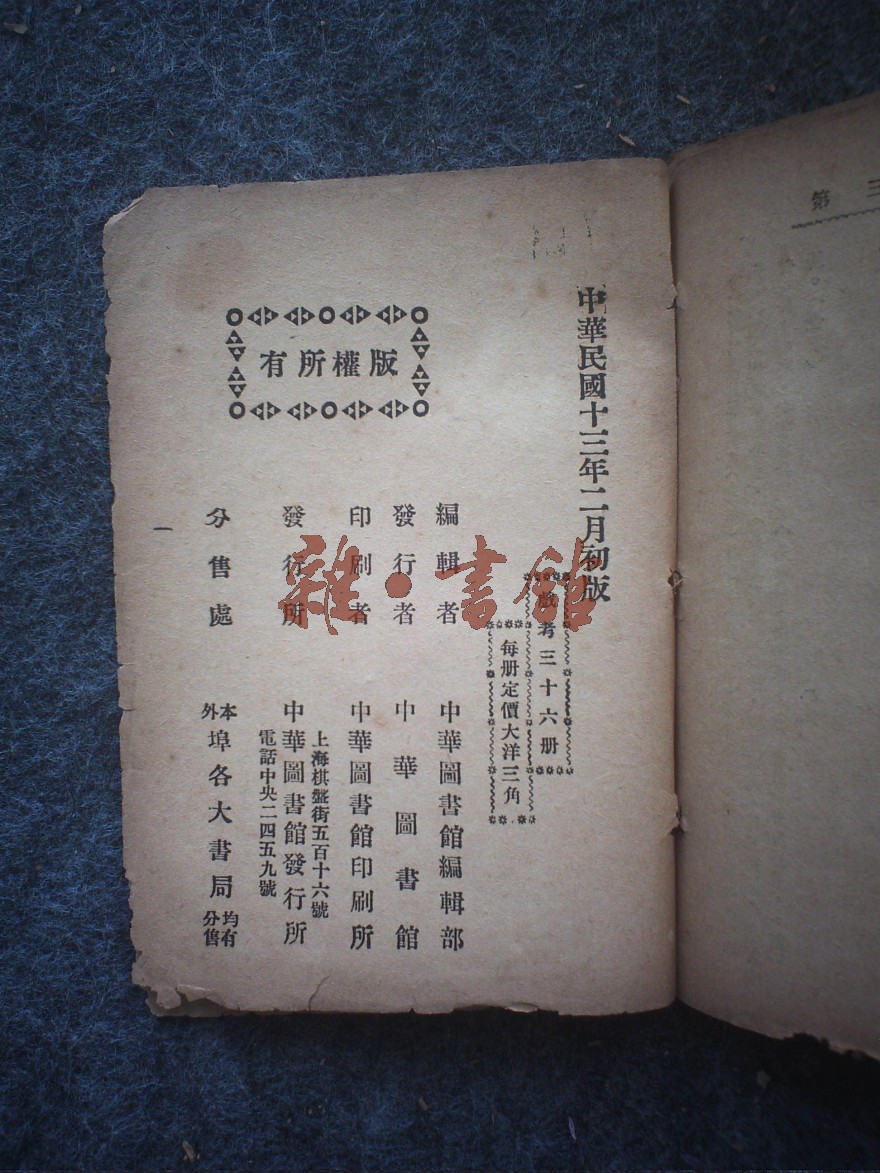 第三
中華民國十三年二月初版
考三十六册
每册定價大洋三角
編輯者 中華圖書館編輯部
發行者 中華圖書館
印刷者 中華圖書館印刷所
上海棋盤街五百十六號
發行所 中華圖書館發行所
電話中央二四五九號
分售處 本外埠各大書局均有分售
版權所有
一
雜·書館